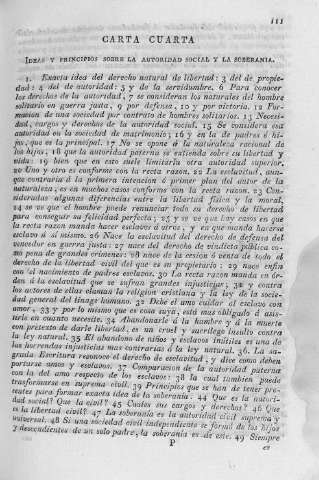 111
CARTA CUARTA
IDEAS Y PRINCIPIOS SOBRE LA AUTORIDAD SOCIAL Y LA SOBERANIA.
1. Exacta idea del derecho natural de libertad: 3 del de propie-
dad: 4 del de autoridad: 5 y de la servidumbre. 6 Para conocer
los derechos de la autoridad, 7 se consideran los naturales del hombre
solitario en guerra justa, 9 por defensa, 10 y por victoria. 12 For-
macion de una sociedad por contrato de hombres solitarios. 13 Necesi-
dad, cargos y derechos de la autoridad social. 15 Se considera esa
autoridad en la sociedad de matrimonio; 16 y en la de padres é hi-
jos, que es la principal. 17 No se opone á la naturaleza racional de
los hijos, 18 que la autoridad paterna se extienda sobre su libertad y
vida: 19 bien que en esto suele limitarla otra autoridad superior,
20 Uno y otro es conforme con la recta razon. 22 La esclavitud, aun-
que contraria á la primera intencion ó primer plan del autor de la
naturaleza, es en muchos casos conforme con la recta razon. 23 Con-
sideradas algunas diferencias entre la libertad física y la moral,
24 se ve que el hombre puede renunciar todo su derecho de libertad
para conseguir su felicidad perfecta; 25 y se ve que hay casos en que
la recta razon manda hacer esclavos á otros, y en que manda hacerse
esclavo á sí mismo. 26 Nace la esclavitud del derecho de defensa del
vencedor en guerra justa: 27 nace del derecho de vindicta pública co-
mo pena de grandes crímenes: 28 nace de la cesion ó venta de todo el
derecho de libertad civil del que es su propietario: 29 nace en fin
con el nacimiento de padres esclavos. 30 La recta razon manda en ór-
den á la esclavitud que se sufran grandes injusticias; 31 y contra
los autores de ellas claman la religion cristiana y la ley de la socie-
dad general del linage humano. 32 Debe el amo cuidar al esclavo con
amor, 33 y por lo mismo que es cosa suya, está mas obligado á asis-
tirle en cuanto necesite. 34 Abandonarle á la hambre y á la muerte
con pretexto de darle libertad, es un cruel y sacrílego insulto contra
la ley natural. 35 El abandono de niños y esclavos inútiles es una de
las horrendas injusticias mas contrarias á la ley natural. 36. La sa-
grada Escritura reconoce el derecho de esclavitud, y dice como deben
portarse amos y esclavos. 37 Comparacion de la autoridad paterna
con la del amo respecto de los esclavos: 38 la cual tambien puede
trasformarse en suprema civil. 39 Principios que se han de tener pre-
sentes para formar exacta idea de la soberanía. 44 Que es la autori-
dad social? Que la civil? 45 Cuáles sus cargos y derechos? 46 Que
es la libertad civil? 47 La soberanía es la autoridad civil suprema y
universal. 48 Si una sociedad civil independiente se forma de los hijos
y descendientes de un solo padre, la soberanía es de este. 49 Siempre
P